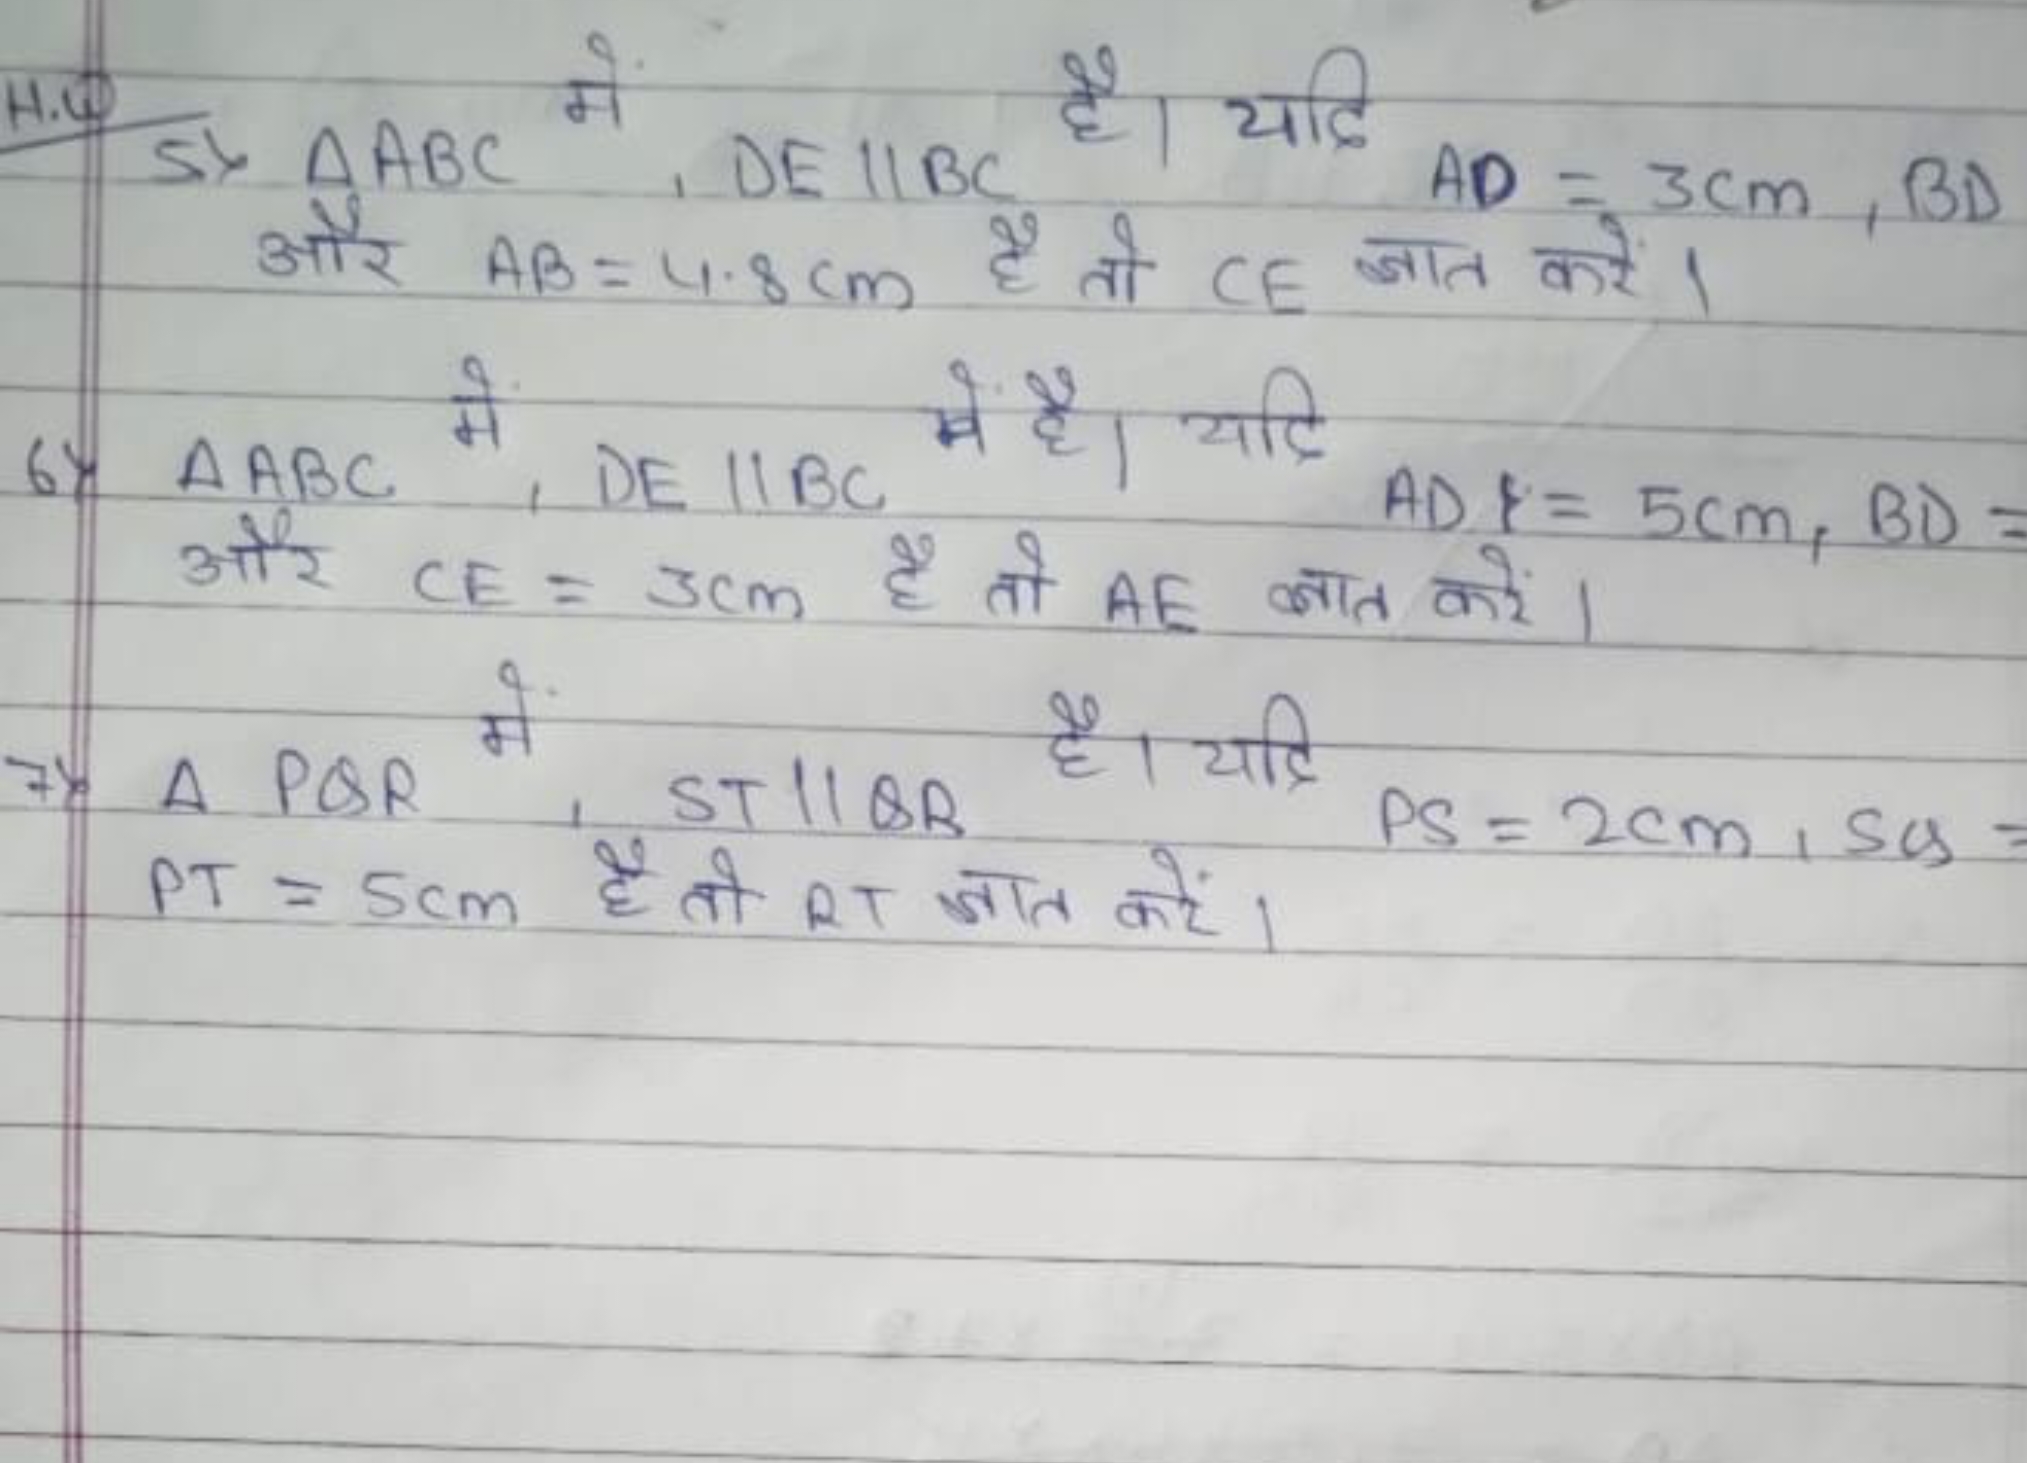 H.W
5) Δ ABC में, DE || BC है। यदि AD = 3cm, BD
और AB = 4.8cm है तो CE ज्ञात करें।
6) Δ ABC में, DE || BC में है। यदि AD = 5cm, BD =
और CE = 3cm है तो AE ज्ञात करें।
7) Δ PQR में, ST || QR है। यदि PS = 2cm, SQ =
PT = 5cm है तो RT ज्ञात करें।